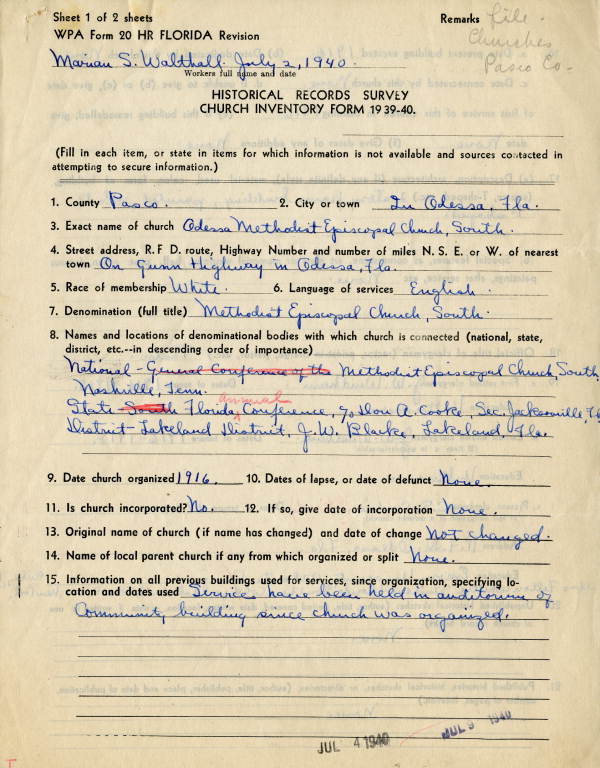 Sheet 1 of 2 sheets
Remarks File.
WPA Form 20 HR FLORIDA Revision
Churches
Pasco Co-
Marian S. Walthall. July 2, 1940.
Workers full name and date
HISTORICAL RECORDS SURVEY
CHURCH INVENTORY FORM 1939-40.
(Fill in each item, or state in items for which information is not available and sources contacted in
attempting to secure information.)
1. County Pasco. 2. City or town In Odessa, Fla.
3. Exact name of church Odessa Methodist Episcopal Church, South.
4. Street address, R. F D. route, Highway Number and number of miles N. S. E. or W. of nearest
town On Gunn Highway in Odessa, Fla.
5. Race of membership White. 6. Language of services English.
7. Denomination (full title) Methodist Episcopal Church, South.
8. Names and locations of denominational bodies with which church is connected (national, state,
district, etc.--in descending order of importance)
National - General Conference of the Methodist Episcopal Church, South,
Nashville, Tenn.
annual
State South Florida Conference, % Don A. Cooke, Sec. Jacksonville, Fla
District - Lakeland District, J. W. Blake, Lakeland, Fla.
9. Date church organized 1916. 10. Dates of lapse, or date of defunct None.
11. Is church incorporated? No. 12. If so, give date of incorporation None.
13. Original name of church (if name has changed) and date of change Not changed.
14. Name of local parent church if any from which organized or split None.
15. Information on all previous buildings used for services, since organization, specifying lo-
cation and dates used Services have been held in auditorium of
Community building since church was organized.
JUL 4 1940
JUL 9 1940